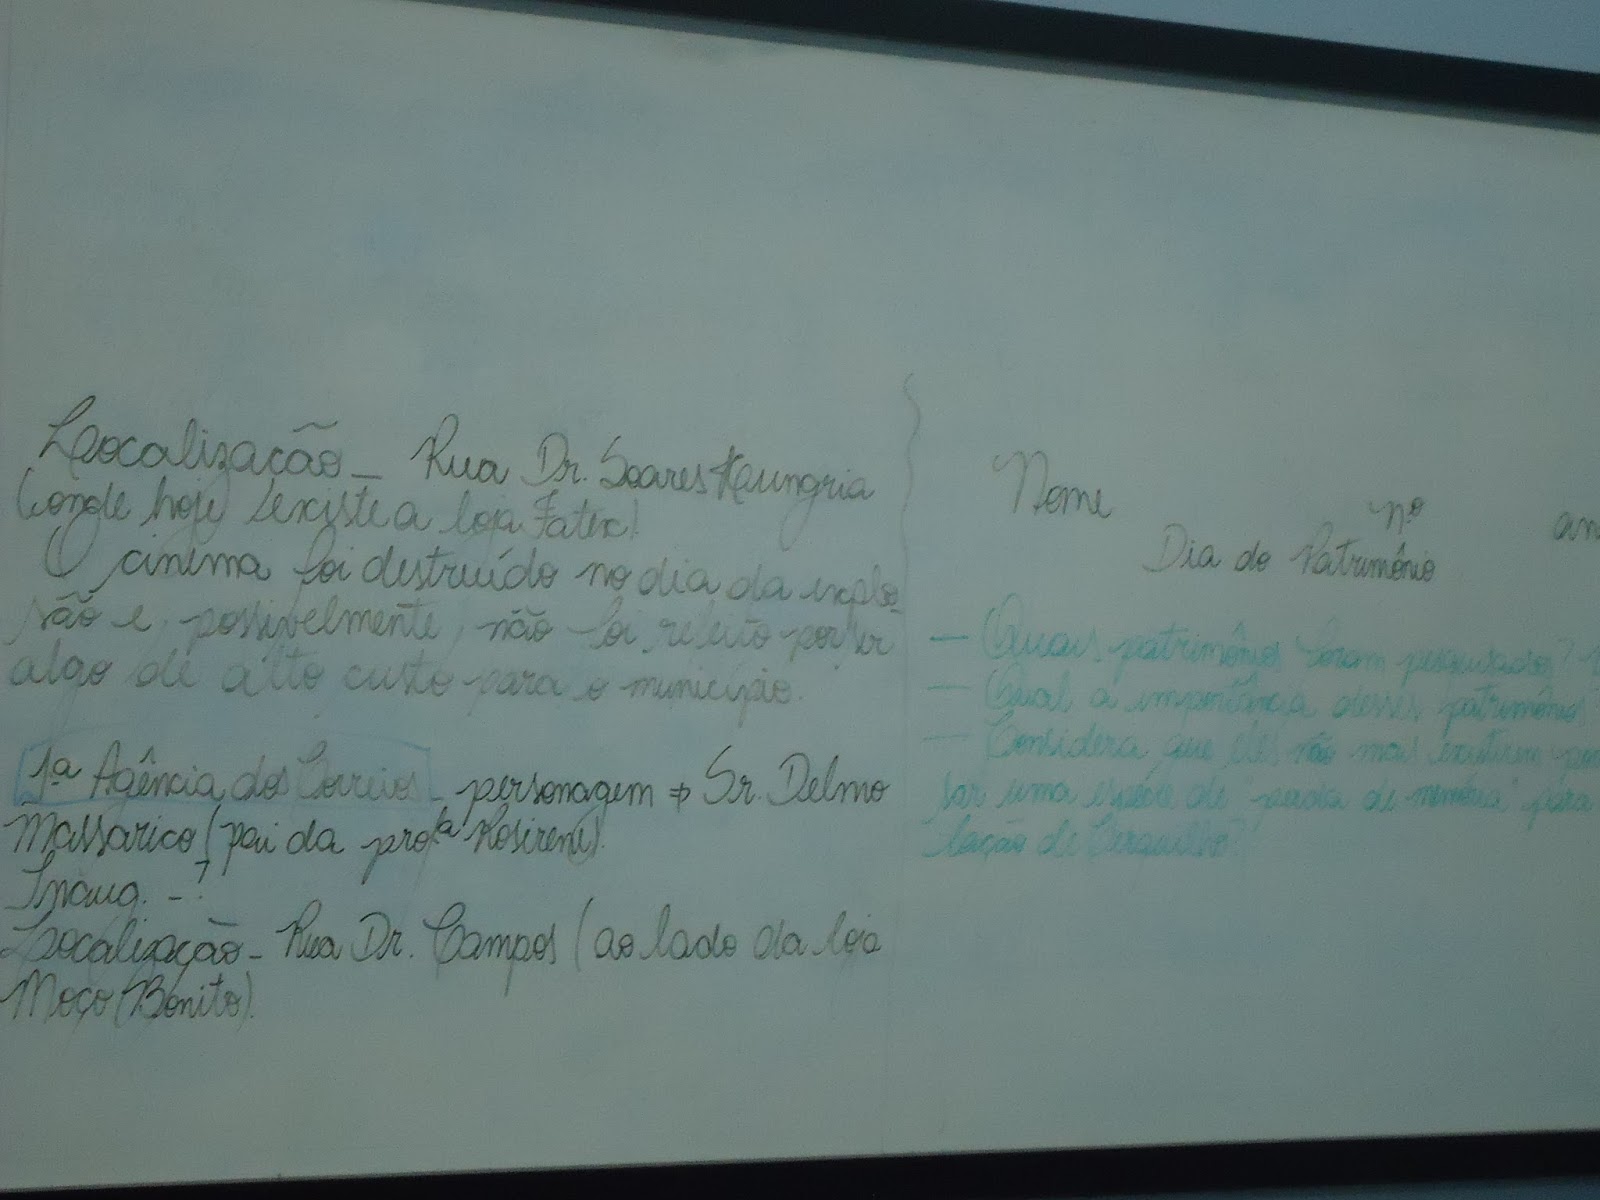 Localização - Rua Dr. Soares Hungria
(onde hoje existe a loja Fatex)
O cinema foi destruído no dia da explo-
são e, possivelmente, não foi refeito por ser
algo de alto custo para o município.
1ª Agência dos Correios - personagem → Sr. Delmo
Massarico (pai da profª Rosirene).
Inaug. - ?
Localização - Rua Dr. Campos (ao lado da loja
Moço Bonito).
Nome nº an
Dia do Patrimônio
— Quais patrimônios foram pesquisados?
— Qual a importância desses patrimônios
— Considera que eles não mais existirem
sar uma espécie de "perda de memória" para
lação de Cerquilho?